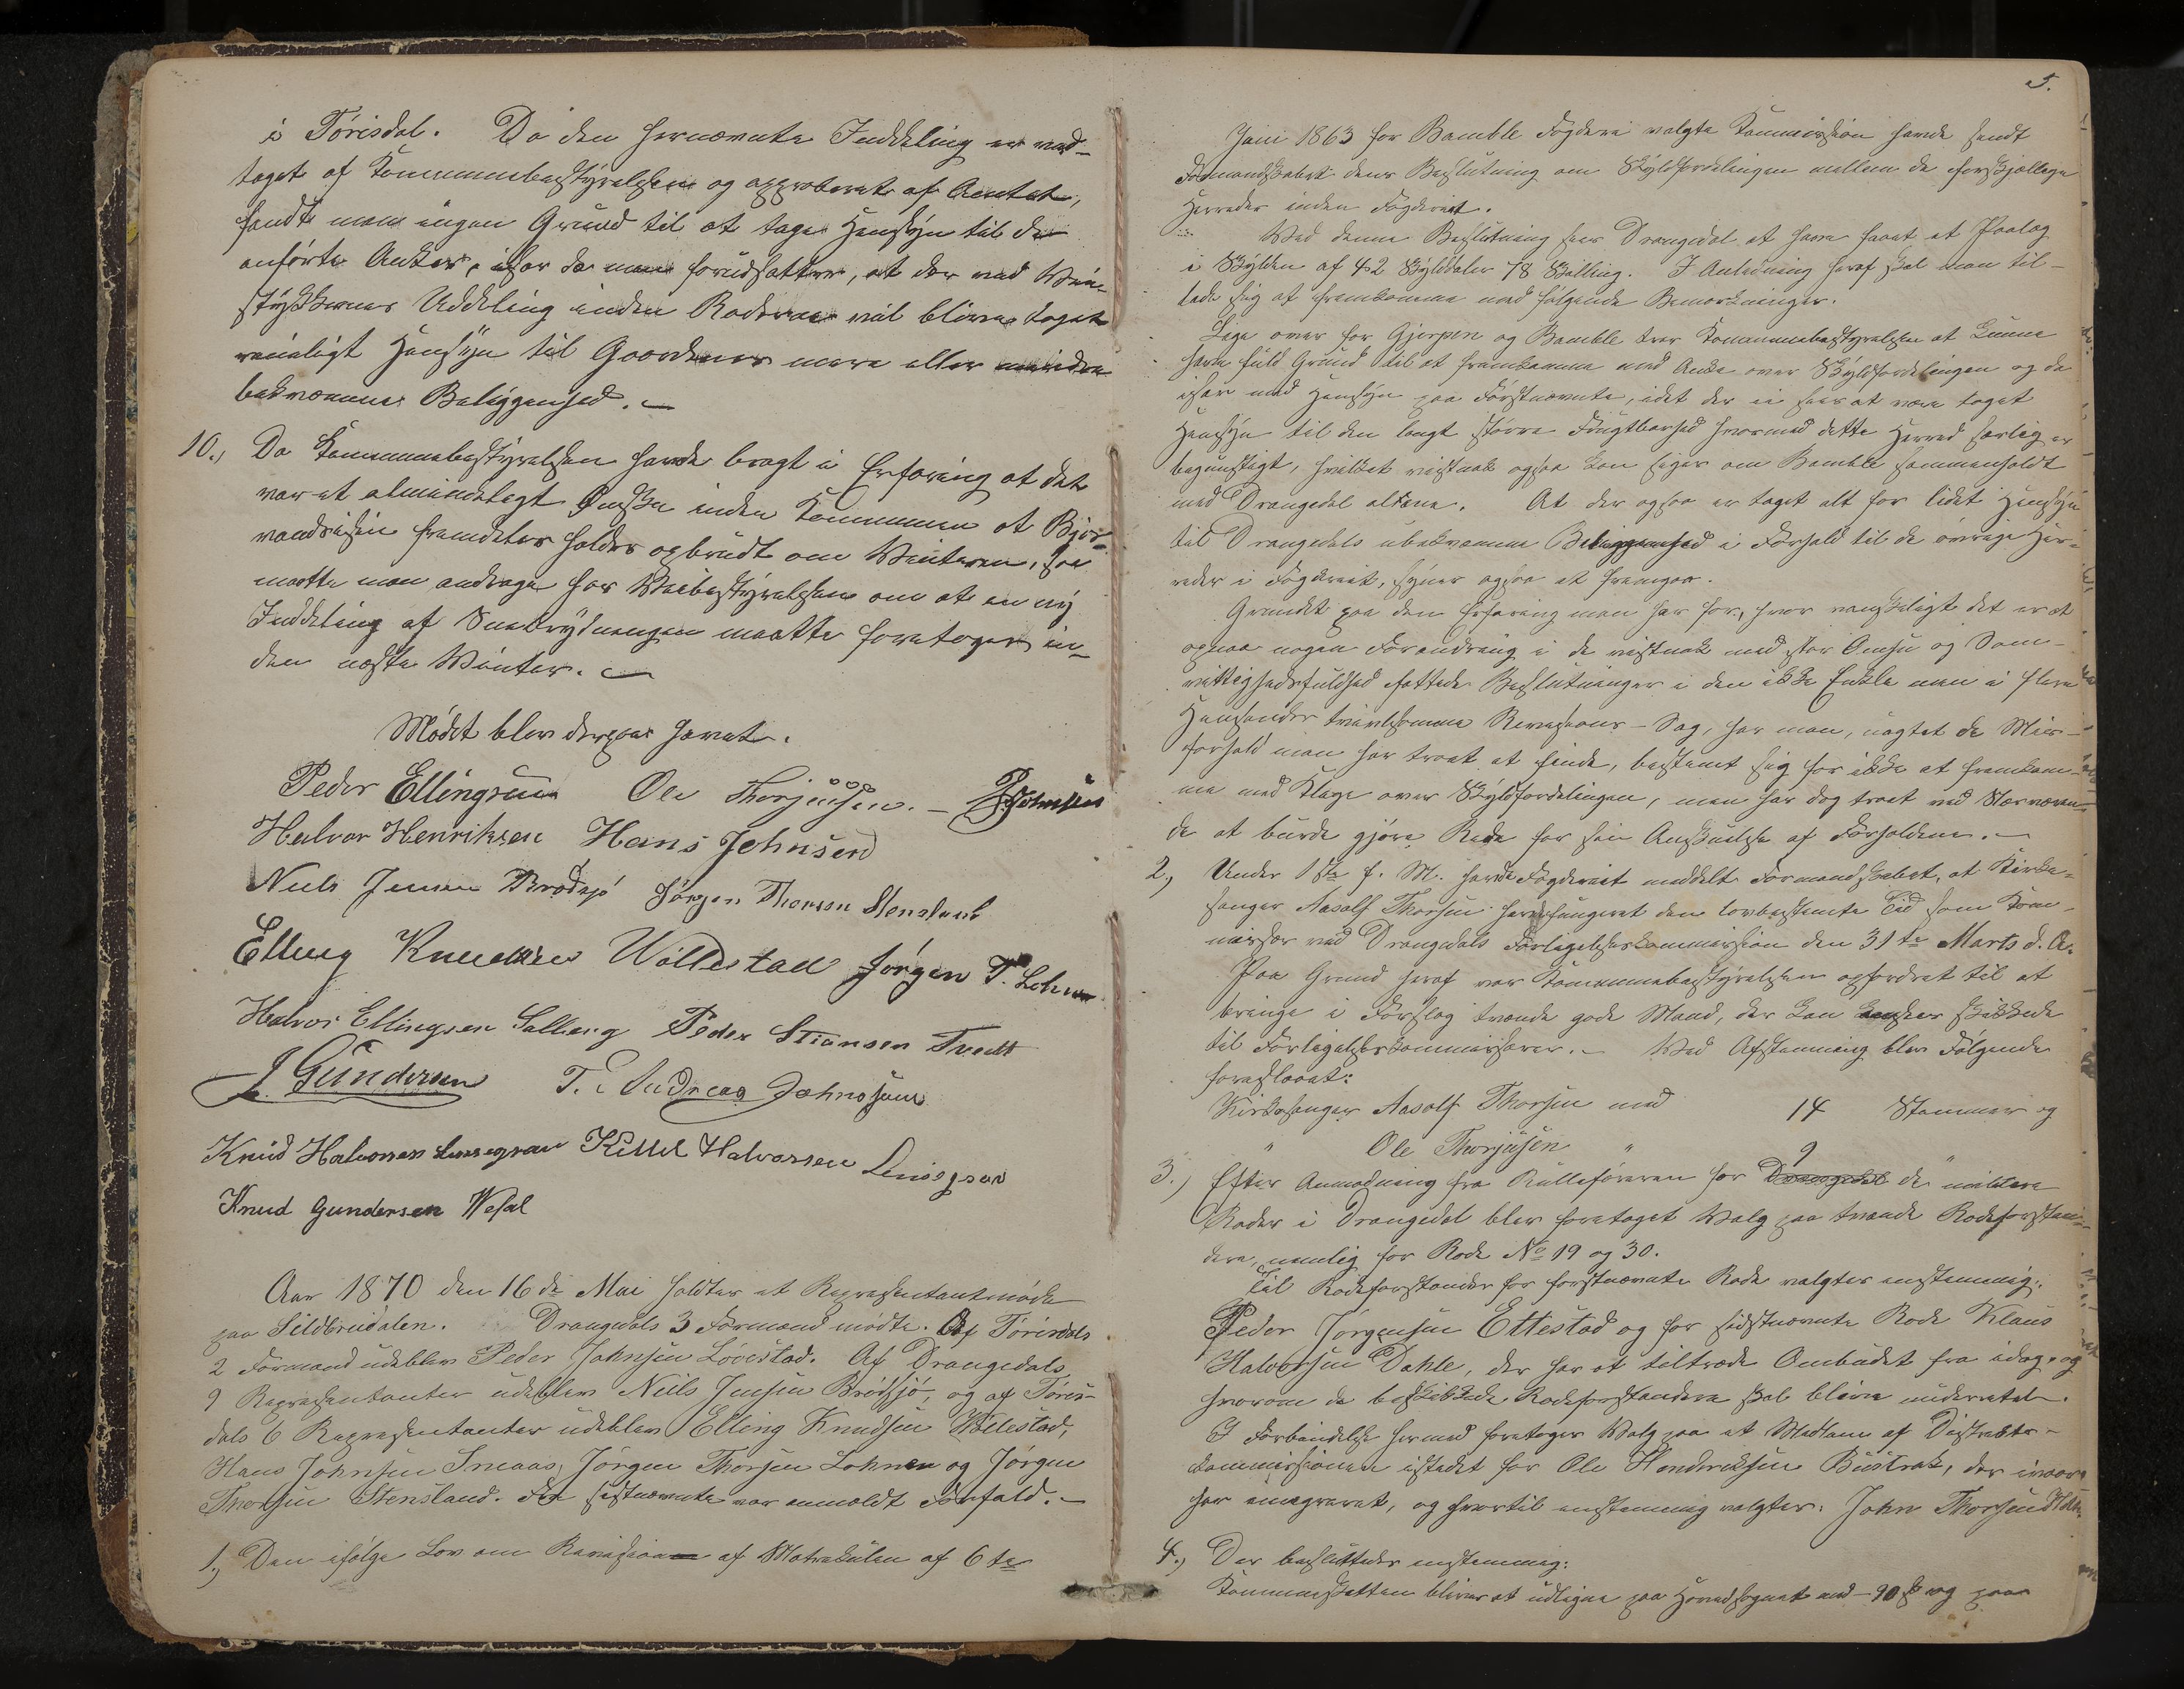 i Tørisdal. Da den hernævnte Inddeling er ved-
taget af Kommunebestyrelsen og approberet af Amtet,
fandt man ingen Grund til at tage Hensyn til de
anførte Anker, især da man forudsætter, at der ved Vei-
stykkernes Uddeling inden Roderne vil blive taget
rimeligt Hensyn til Gaardenes mere eller mindre
bekvemme Beliggenhed. –
10., Da Kommunebestyrelsen havde bragt i Erfaring at det
var et almindeligt Ønske inden Kommunen at Bjør-
vandsisen fremdeles holdes opbrudt om Vinteren, saa
maatte man andrage for Veibestyrelsen om at en ny
Inddeling af Snebrydningen maatte foretages in-
den næste Vinter. –
Mødet blev derpaa hævet.
Peder Ellingsen Ole Thorjussen. – Johnsen
Halvor Henriksen Hans Johnsen
Niels Jensen Brødsjø Jørgen Thorsen Stensland
Elling Knudsen Wøllestad Jørgen T. Lohne
Halvor Ellingsen Solberg Peder Stiansen Tvedt
J. Gundersen T. Andreas Johnsen
Knud Halvorsen Kittel Halvorsen
Knud Gundersen Wefal
Aar 1870 den 16de Mai holdtes et Repræsentantmøde
paa Sildbrudalen. Drangedals 3 Formænd mødte. Af Tørisdals
2 Formænd udeblev Peder Johnsen Løvestad. Af Drangedals
9 Repræsentanter udeblev Niels Jensen Brødsjø, og af Tøris-
dals 6 Repræsentanter udeblev Elling Knudsen Wøllestad,
Hans Johnsen Smaas, Jørgen Thorsen Lohne og Jørgen
Thorsen Stensland. For sistnævnte var anmeldt Forfald. –
1., Den ifølge Lov om Revision af Matrikulen af 6te
5.
Juni 1863 for Bamble Fogderi valgte Kommission havde sendt
Formandskabet dens Beslutning om Skyldfordelingen mellem de forskjellige
Herreder inden Fogderiet.
Ved denne Beslutning sees Drangedal at have faaet et Paalæg
i Skylden af 42 Skylddaler 78 Skilling. I Anledning heraf skal man til-
lade sig at fremkomme med følgende Bemærkninger.
Lige over for Gjerpen og Bamble tror Kommunebestyrelsen at kunne
have fuld Grund til at fremkomme med Anke over Skyldfordelingen og da
især med Hensyn paa Førstnævnte, idet der ei sees at være taget
Hensyn til den langt større Frugtbarhed hvormed dette Herred særlig er
begunstiget, hvilket vistnok ogsaa kan siges om Bamble sammenholdt
med Drangedal alene. At der ogsaa er taget alt for lidet Hensyn
til Drangedals ubekvemme Beliggenhed i Forhold til de øvrige Her-
reder i Fogderiet, synes ogsaa at fremgaa.
Grundet paa den Erfaring man har for, hvor vanskeligt det er at
opnaa nogen Forandring i de vistnok med stor Omhu og Sam-
vittighedsfuldhed fattede Beslutninger i den ikke Enkle men i flere
Henseender tvivlsomme Revisions-Sag, har man, uagtet de Mis-
forhold man har troet at finde, bestemt sig for ikke at fremkom-
me med Klage over Skyldfordelingen, men har dog troet ved Nærværen-
de at burde gjøre Rede for sin Anskuelse af Forholdene. –
2., Under 1ste f. M. havde Fogderiet meddelt Formandskabet, at Kirke-
sanger Aasolf Thorsen havde fungeret den lovbestemte Tid som Kom-
missær ved Drangedals Forligelseskommission den 31te Marts d. A.
Paa Grund heraf var Kommunebestyrelsen opfordret til at
bringe i Forslag tvende gode Mænd, der kan ansees skikkede
til Forligelseskommissærer. – Ved Afstemning blev Følgende
foreslaaet:
Kirkesanger Aasolf Thorsen med 14 Stemmer og
" Ole Thorjusen " 9 "
3.) Efter Anmodning fra Rulleføreren for Drangedal de militære
Roder i Drangedal blev foretaget Valg paa tvende Rodeforstan-
dere, nemlig for Rode No 19 og 30.
Til Rodeforstander for førstnævnte Rode valgtes enstemmig:
Peder Jørgensen Ettestad og for sidstnævnte Rode Klaus
Halvorsen Dahle, der har at tiltræde Ombudet fra idag, og
hvorom de beskikkede Rodeforstandere skal blive underrettet.
I Forbindelse hermed foretoges Valg paa et Medlem af Distrikts-
kommissionen istedet for Ole Hendriksen Bustrak, der
har emigreret, og hvortil enstemmig valgtes: John Thorsen
4.) Der besluttedes enstemmig:
Kommuneskatten bliver at udligne paa Hovedsognet med 90 ß og paa